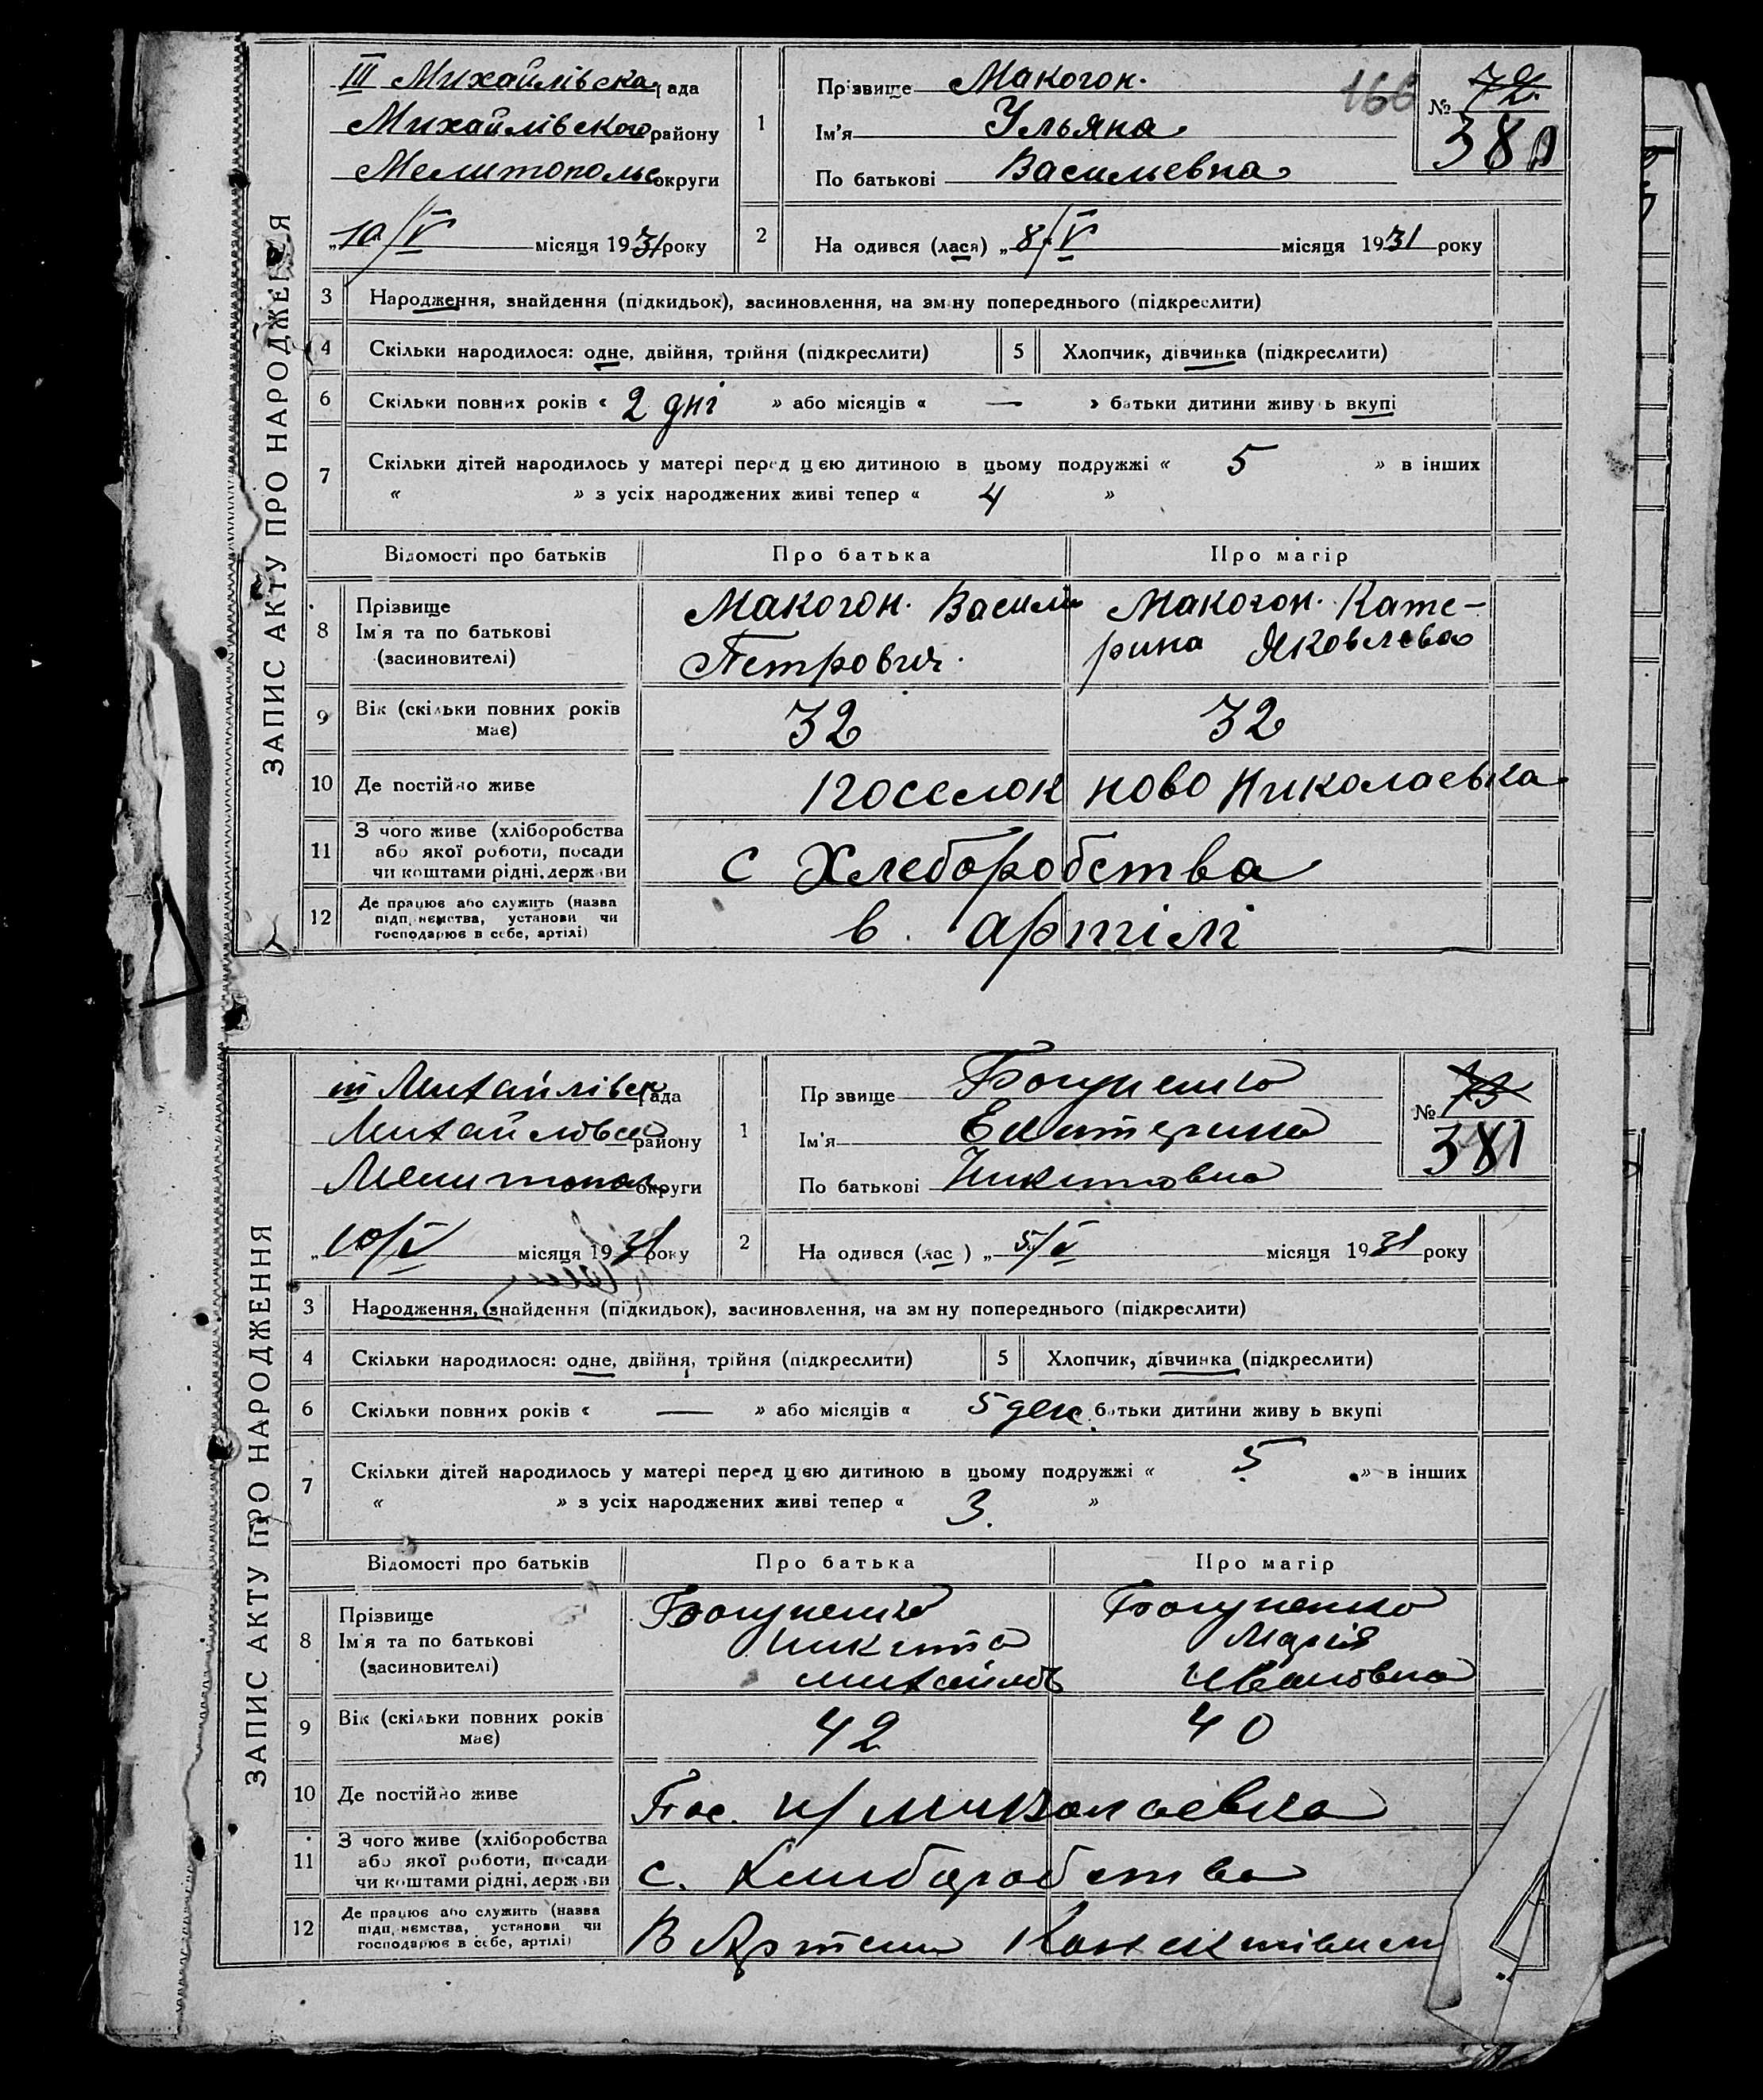 ЗАПИС АКТУ ПРО НАРОДЖЕННЯ
III Михайлівска рада
Михайлівского району
Мелитопольс округи
"10/V місяця 1931 року
1 Прізвище Макогон.
166
№ 72
380
Ім'я Ульяна
По батькові Васильевна
2 На одився (лася) „8/V місяця 1931 року
3 Народження, знайдення (підкидьок), засиновлення, на зм ну попереднього (підкреслити)
4 Скільки народилося: одне, двійня, трійня (підкреслити) 5 Хлопчик, дівчинка (підкреслити)
6 Скільки повних років « 2 дні » або місяців « — » батьки дитини живу ь вкупі
7 Скільки дітей народилось у матері перед цією дитиною в цьому подружжі « 5 » в інших
« » з усіх народжених живі тепер « 4 »
Відомості про батьків Про батька Про матір
8 Прізвище
Ім'я та по батькові
(засиновителі)
Макогон. Васили
Петрович.
Макогон. Кате-
рина Яковлева
9 Вік (скільки повних років
має)
32 32
10 Де постійно живе Поселок ново Николаевка
11 З чого живе (хліборобства
або якої роботи, посади
чи коштами рідні, держави
с Хлеборобства
12 Де працює або служить (назва
підп немства, установи чи
господарює в себе, артілі)
в. артілі
ЗАПИС АКТУ ПРО НАРОДЖЕННЯ
III Михайлівск рада
Михайловск району
Мелитопол округи
„10/V місяця 1931 року
1 Пр звище Богуненко
№ 73
381
Ім'я Екатерина
По батькові Никитовна
2 На одився (лас ) „5/V місяця 1931 року
3 Народження, знайдення (підкидьок), засиновлення, на зм ну попереднього (підкреслити)
4 Скільки народилося: одне, двійня, трійня (підкреслити) 5 Хлопчик, дівчинка (підкреслити)
6 Скільки повних років « — » або місяців « 5 ден. батьки дитини живу ь вкупі
7 Скільки дітей народилось у матері перед цією дитиною в цьому подружжі « 5 » в інших
« » з усіх народжених живі тепер « 3. »
Відомості про батьків Про батька Про матір
8 Прізвище
Ім'я та по батькові
(засиновителі)
Богуненко
Никита
Михайлов
Богуненко
Марія
Ивановна
9 Вік (скільки повних років
має)
42 40
10 Де постійно живе Пос. н/Миколаевка
11 З чого живе (хліборобства
або якої роботи, посади
чи коштами рідні, держави
с. Хлиборобства
12 Де працює або служить (назва
підп немства, установи чи
господарює в себе, артілі)
В Артели